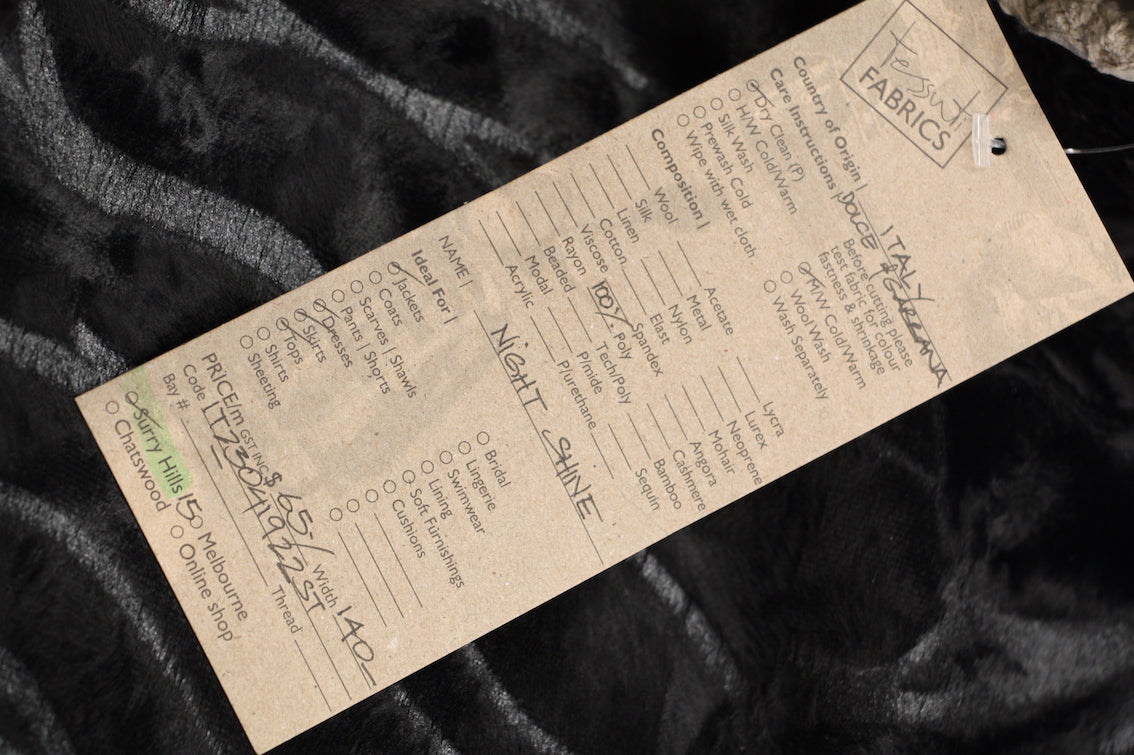 tessuti
FABRICS
Country of Origin | ITALY
Care Instructions | DOUCE
Dry Clean (P)
H/W Cold/Warm
Silk Wash
Prewash Cold
Wipe with wet cloth
Before cutting please
test fabric for colour
fastness & shrinkage
M/W Cold/Warm
Wool Wash
Wash Separately
Composition |
Wool
Silk
Linen
Cotton
Viscose
Rayon
Beaded
Modal
Acrylic
Acetate
Metal
Nylon
Elast
Spandex
100% Poly
Tech/Poly
P/mide
P/urethane
Lycra
Lurex
Neoprene
Mohair
Angora
Cashmere
Bamboo
Sequin
NAME | NIGHT SHINE
Ideal For |
Jackets
Coats
Scarves | Shawls
Pants | Shorts
Dresses
Skirts
Tops
Shirts
Sheeting
Bridal
Lingerie
Swimwear
Lining
Soft Furnishings
Cushions
PRICE/m GST INC $65/ Width 140
Code IT23041922ST
Bay # Thread
Surry Hills 15 Melbourne
Chatswood Online shop